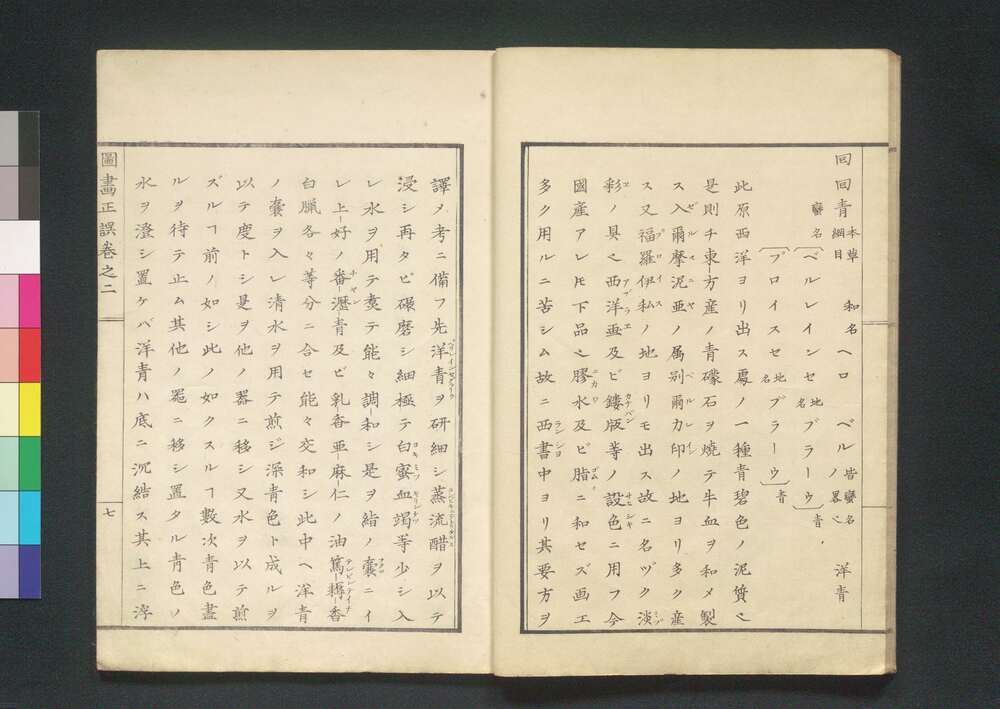 回回青 本草綱目 和名ヘロ ベル皆蠻名ノ畧ヘ 洋青
蠻名 ベルレインセ地名ブラーウ青、
プロイスセ地名ブラーウ青
此原西洋ヨリ出ス處ノ一種青碧色ノ泥質ヘ
是則チ東方産ノ青礞石ヲ燒テ牛血ヲ和メ製
ス入爾摩泥亜ノ属別爾力印ノ地ヨリ多ク産
ス又福羅伊私ノ地ヨリモ出ス故ニ名ヅク淡
彩ノ具ヘ西洋画及ビ鏤版等ノ設色ニ用フ今
國産アレ𪜈下品ヘ膠水及ビ脂ニ和セズ画工
多ク用ルニ苦シム故ニ西書中ヨリ其要方ヲ
譯メ考ニ備フ先洋青ヲ研細シ蒸流醋ヲ以テ
浸シ再タビ碾磨シ細極テ白蜜血竭等少シ入
レ水ヲ用テ煑テ能々調和シ是ヲ絹ノ囊ニイ
レ上好ノ番瀝青及ビ乳香亜麻仁ノ油篤耨香
白臘各々等分ニ合セ能々交和シ此中ヘ洋青
ノ囊ヲ入レ清水ヲ用テ煎ジ深青色ト成ルヲ
以テ度トシ是ヲ他ノ器ニ移シ又水ヲ以テ煎
ズルヿ前ノ如シ此ノ如クスルヿ數次青色盡
ルヲ待テ止ム其他ノ器ニ移シ置タル青色ノ
水ヲ澄シ置ケバ洋青ハ底ニ沉結ス其上ニ浮
圖畵正誤卷之二
七